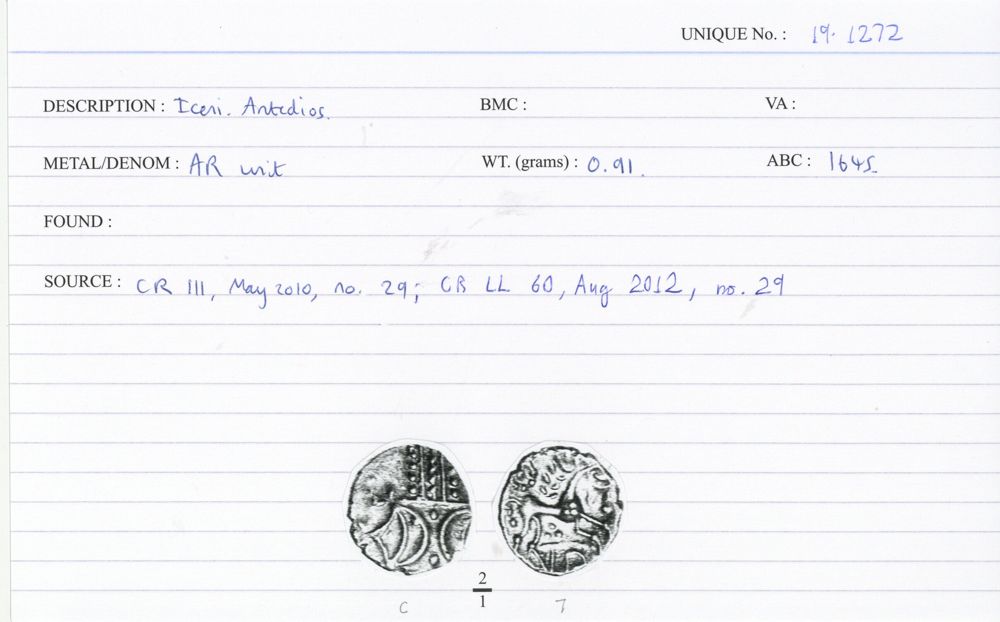 UNIQUE No. : 19.1272
DESCRIPTION : Iceni. Antedios. BMC : VA :
METAL/DENOM : AR unit WT. (grams) : 0.91. ABC : 1645
FOUND :
SOURCE : CR 111, May 2010, no. 29; CR LL 60, Aug 2012, no. 29
2
1
C 7